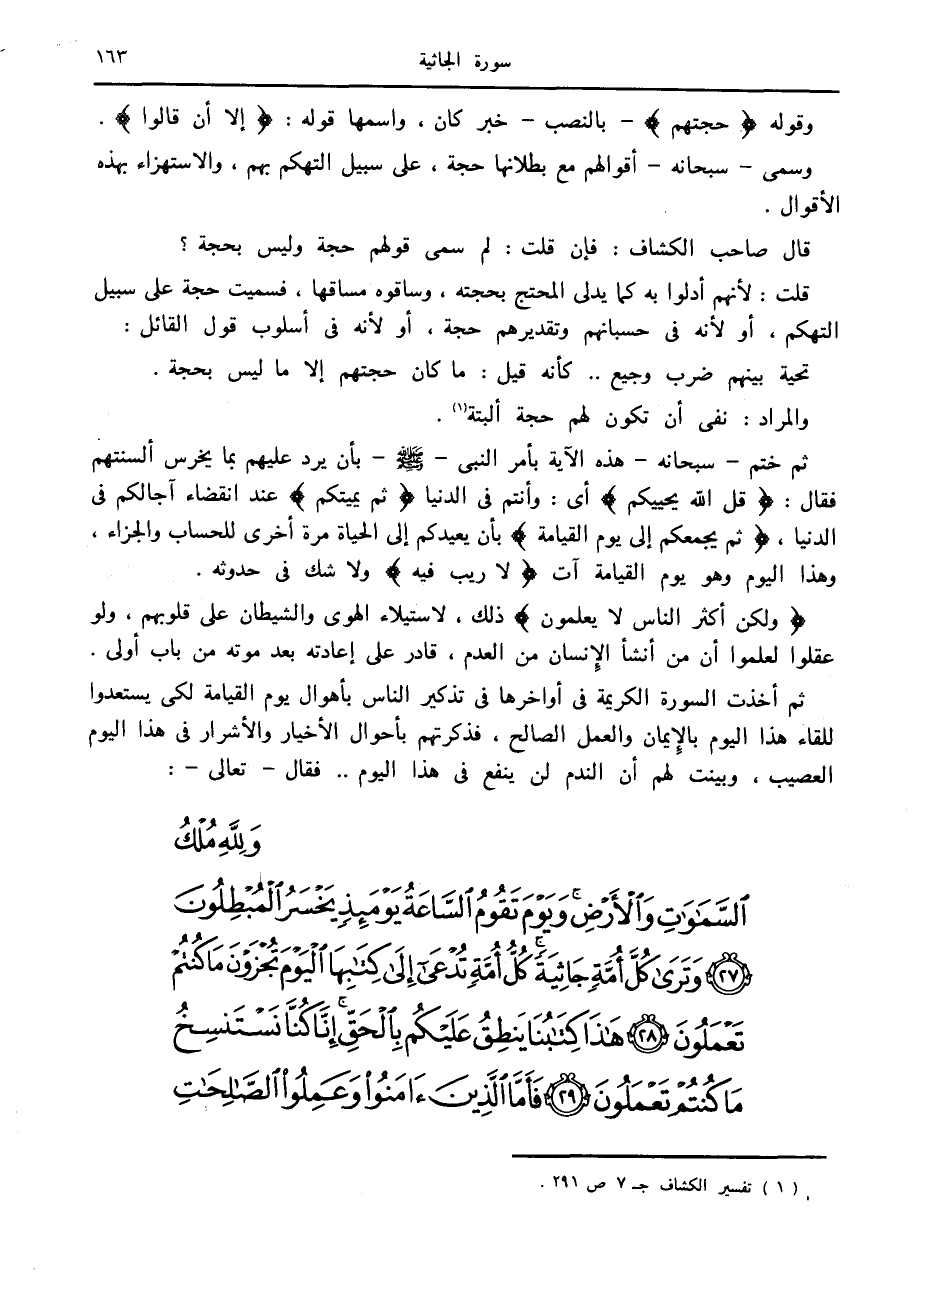 سورة الجاثية
١٦٣
وقوله ﴿ حجتهم ﴾ – بالنصب – خبر كان ، واسمها قوله : ﴿ إلا أن قالوا ﴾ .
وسمى – سبحانه – أقوالهم مع بطلانها حجة ، على سبيل التهكم بهم ، والاستهزاء بهذه
الأقوال .
قال صاحب الكشاف : فإن قلت : لم سمى قولهم حجة وليس بحجة ؟
قلت : لأنهم أدلوا به كما يدلى المحتج بحجته ، وساقوه مساقها ، فسميت حجة على سبيل
التهكم ، أو لأنه فى حسبانهم وتقديرهم حجة ، أو لأنه فى أسلوب قول القائل :
تحية بينهم ضرب وجيع .. كأنه قيل : ما كان حجتهم إلا ما ليس بحجة .
والمراد : نفى أن تكون لهم حجة ألبتة(١) .
ثم ختم – سبحانه – هذه الآية بأمر النبى – ﷺ – بأن يرد عليهم بما يخرس ألسنتهم
فقال : ﴿ قل الله يحييكم ﴾ أى : وأنتم فى الدنيا ﴿ ثم يميتكم ﴾ عند انقضاء آجالكم فى
الدنيا ، ﴿ ثم يجمعكم إلى يوم القيامة ﴾ بأن يعيدكم إلى الحياة مرة أخرى للحساب والجزاء ،
وهذا اليوم وهو يوم القيامة آت ﴿ لا ريب فيه ﴾ ولا شك فى حدوثه .
﴿ ولكن أكثر الناس لا يعلمون ﴾ ذلك ، لاستيلاء الهوى والشيطان على قلوبهم ، ولو
عقلوا لعلموا أن من أنشأ الإنسان من العدم ، قادر على إعادته بعد موته من باب أولى .
ثم أخذت السورة الكريمة فى أواخرها فى تذكير الناس بأهوال يوم القيامة لكى يستعدوا
للقاء هذا اليوم بالإيمان والعمل الصالح ، فذكرتهم بأحوال الأخيار والأشرار فى هذا اليوم
العصيب ، وبينت لهم أن الندم لن ينفع فى هذا اليوم .. فقال – تعالى – :
وَلِلَّهِ مُلْكُ
ٱلسَّمَٰوَٰتِ وَٱلْأَرْضِۚ وَيَوْمَ تَقُومُ ٱلسَّاعَةُ يَوْمَئِذٍ يَخْسَرُ ٱلْمُبْطِلُونَ
﴿٢٧﴾ وَتَرَىٰ كُلَّ أُمَّةٍ جَاثِيَةً ۚ كُلُّ أُمَّةٍ تُدْعَىٰٓ إِلَىٰ كِتَٰبِهَا ٱلْيَوْمَ تُجْزَوْنَ مَا كُنتُمْ
تَعْمَلُونَ ﴿٢٨﴾ هَٰذَا كِتَٰبُنَا يَنطِقُ عَلَيْكُم بِٱلْحَقِّ ۚ إِنَّا كُنَّا نَسْتَنسِخُ
مَا كُنتُمْ تَعْمَلُونَ ﴿٢٩﴾ فَأَمَّا ٱلَّذِينَ ءَامَنُوا۟ وَعَمِلُوا۟ ٱلصَّٰلِحَٰتِ
( ١ ) تفسير الكشاف جـ ٧ ص ٢٩١ .